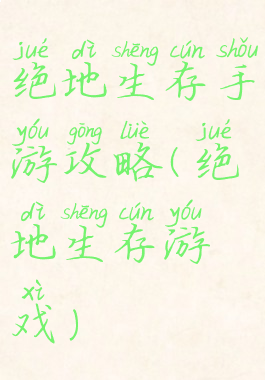 jué dì shēng cún shǒu
绝地生存手
yóu gōng lüè jué
游攻略(绝
dì shēng cún yóu
地生存游
xì
戏)